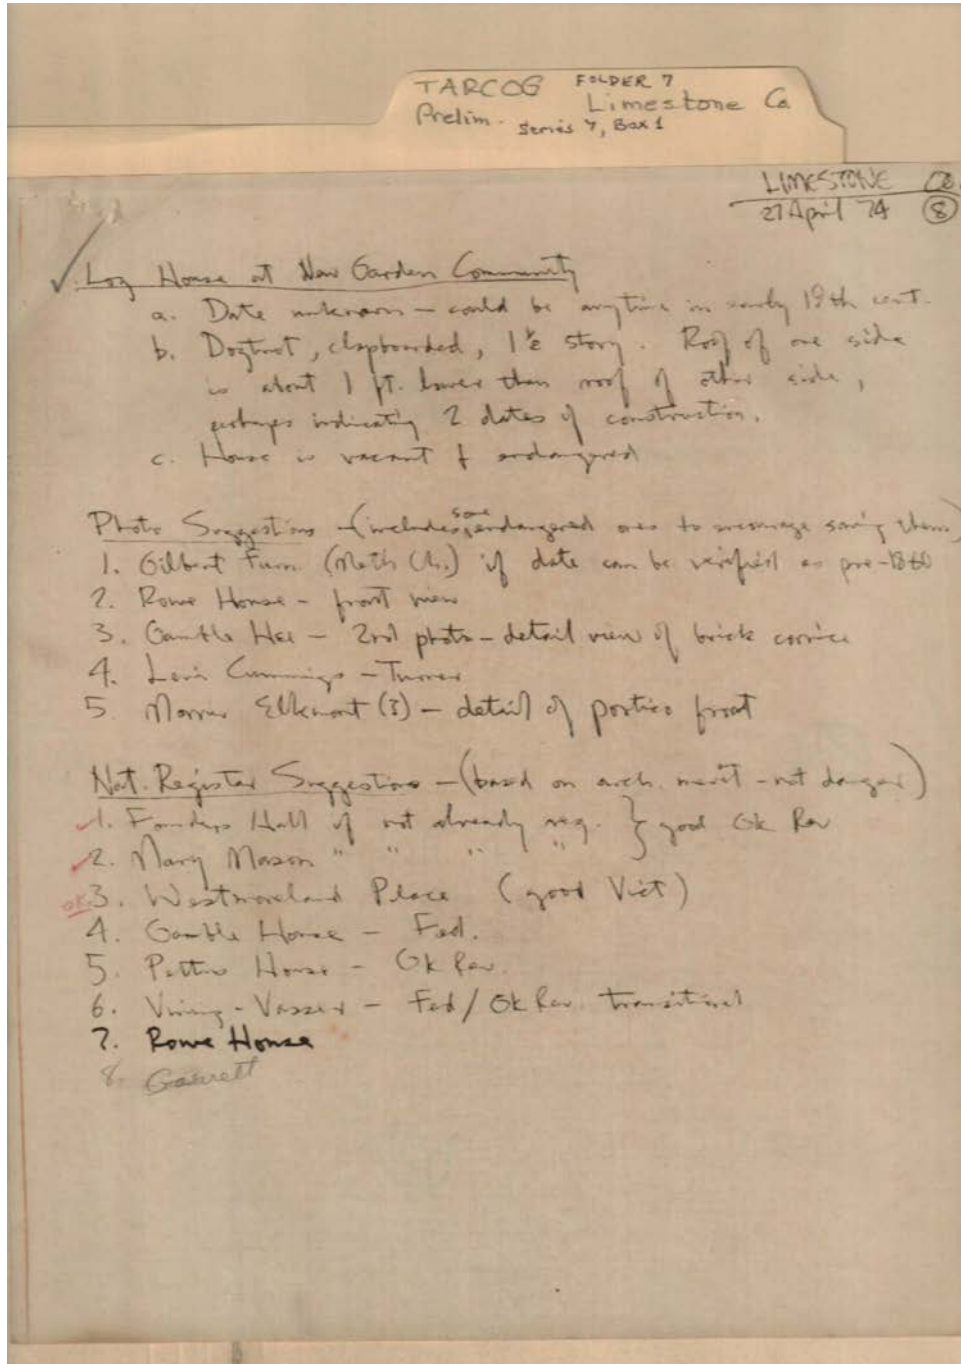 TARCOG FOLDER 7
Prelim. Limestone Co
Series 4, Box 1
LIMESTONE Co.
27 April 74 8
✓. Log House at New Garden Community
a. Date unknown – could be anytime in early 19th cent.
b. Dogtrot, clapboarded, 1½ story. Roof of one side
is about 1 ft. lower than roof of other side,
perhaps indicating 2 dates of construction.
c. House is vacant & endangered
Photo Suggestions – (includes some endangered ones to encourage saving them)
1. Gilbert Furn. (Meth Ch.) if date can be verified as pre-1860
2. Rowe House – front view
3. Gamble Hse – 2nd photo – detail view of brick cornice
4. Levi Cummings – Turner
5. Morris Elkmont (3) – detail of portico front
Nat. Register Suggestions – (based on arch. merit – not danger)
1. Founders Hall if not already reg. } good Gk Rev
2. Mary Mason " " " "
OK 3. Westmoreland Place (good Vict)
4. Gamble House – Fed.
5. House – Gk Rev.
6. Vining-Vasser – Fed/Gk Rev. transitional
7. Rowe House
8. Garrett